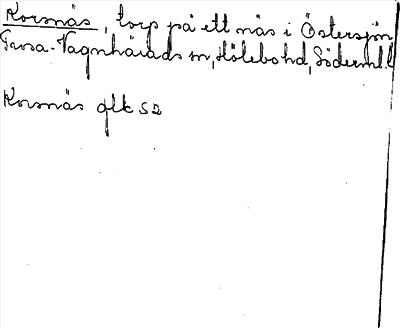 Korsnäs, torp på ett näs i Östersjön
Trosa-Vagnhärads sn, Hölebo hd, Söderml. l
Korsnäs glk S2